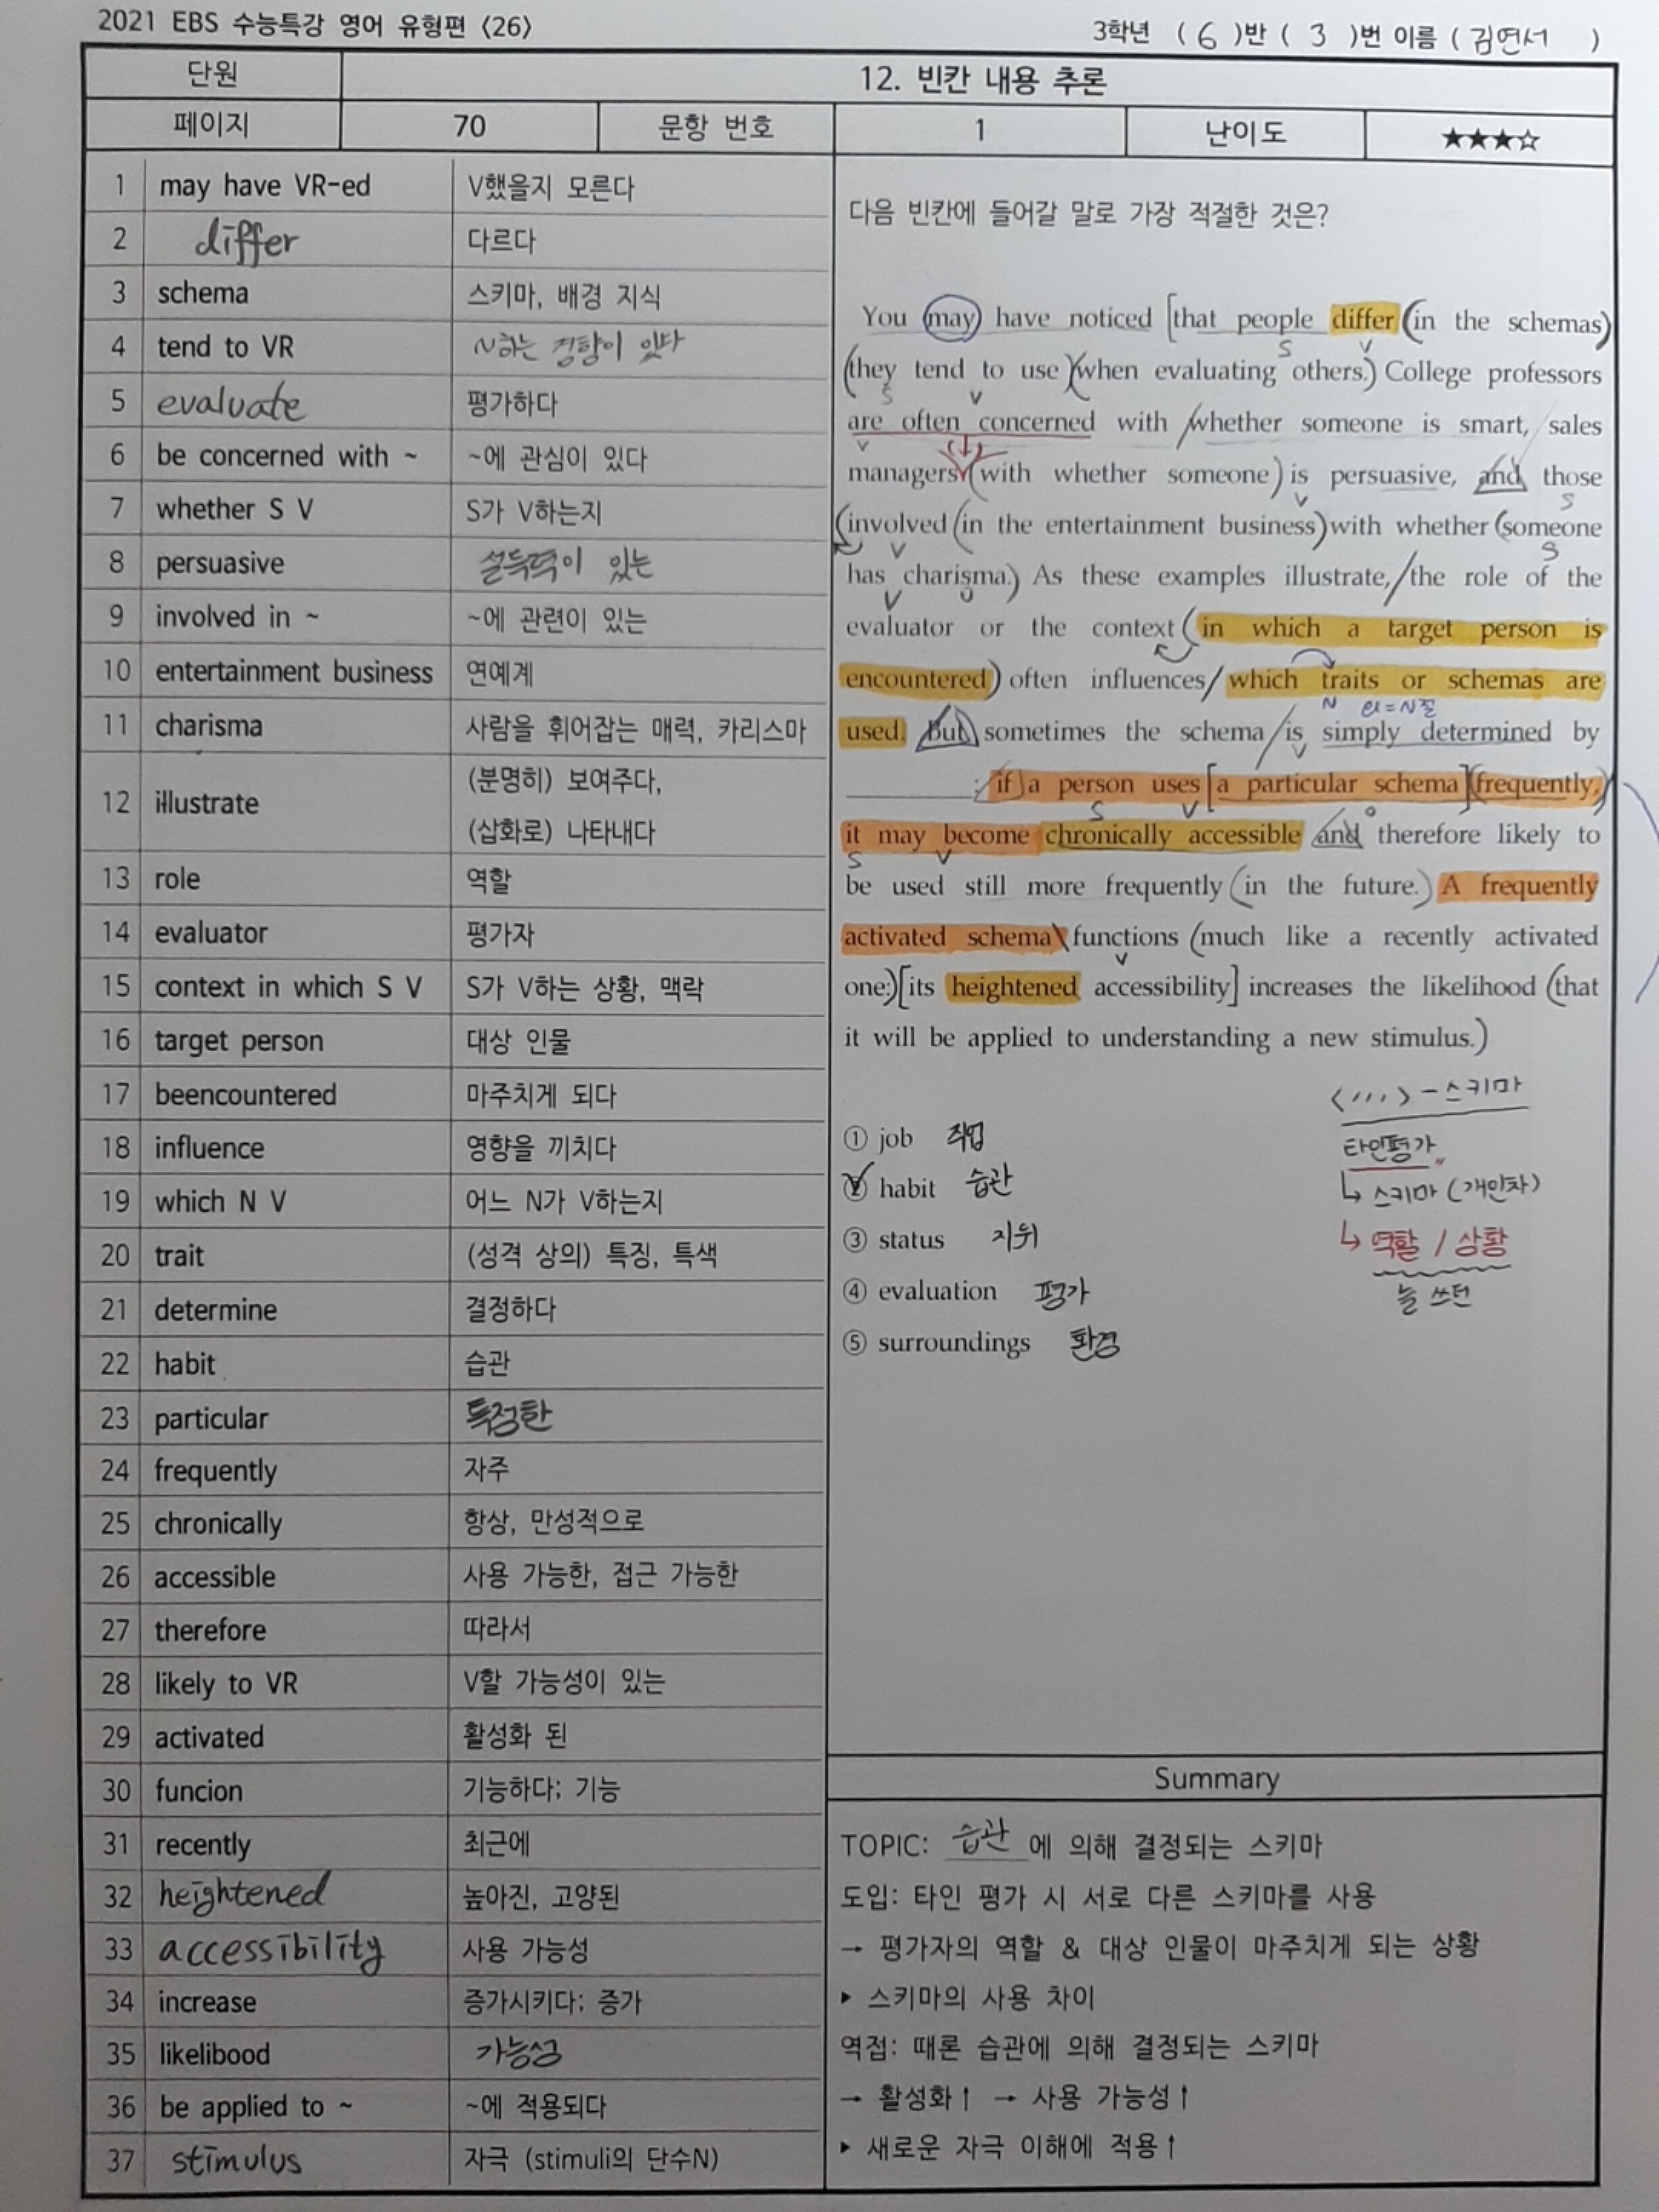 2021 EBS 수능특강 영어 유형편 <26>
3학년 ( 6 )반 ( 3 )번 이름 ( 김연서 )
단원 12. 빈칸 내용 추론
페이지 70 문항 번호 1 난이도 ★★★☆
1 may have VR-ed V했을지 모른다
2 differ 다르다
3 schema 스키마, 배경 지식
4 tend to VR ~하는 경향이 있다
5 evaluate 평가하다
6 be concerned with ~ ~에 관심이 있다
7 whether S V S가 V하는지
8 persuasive 설득력이 있는
9 involved in ~ ~에 관련이 있는
10 entertainment business 연예계
11 charisma 사람을 휘어잡는 매력, 카리스마
12 illustrate (분명히) 보여주다,
(삽화로) 나타내다
13 role 역할
14 evaluator 평가자
15 context in which S V S가 V하는 상황, 맥락
16 target person 대상 인물
17 beencountered 마주치게 되다
18 influence 영향을 끼치다
19 which N V 어느 N가 V하는지
20 trait (성격 상의) 특징, 특색
21 determine 결정하다
22 habit 습관
23 particular 특정한
24 frequently 자주
25 chronically 항상, 만성적으로
26 accessible 사용 가능한, 접근 가능한
27 therefore 따라서
28 likely to VR V할 가능성이 있는
29 activated 활성화 된
30 funcion 기능하다; 기능
31 recently 최근에
32 heightened 높아진, 고양된
33 accessibility 사용 가능성
34 increase 증가시키다; 증가
35 likelibood 가능성
36 be applied to ~ ~에 적용되다
37 stimulus 자극 (stimuli의 단수N)
다음 빈칸에 들어갈 말로 가장 적절한 것은?
You may have noticed [that people differ (in the schemas)
S V
(they tend to use)(when evaluating others.) College professors
S V
are often concerned with / whether someone is smart, sales
V (↓)
managers (with whether someone) is persuasive, and those
V S
(involved (in the entertainment business) with whether (someone
V S
has charisma.) As these examples illustrate, / the role of the
V
evaluator or the context (in which a target person is
encountered) often influences / which traits or schemas are
N 의=N절
used. But sometimes the schema / is simply determined by
V
________: if a person uses [a particular schema] (frequently,)
S V o
it may become chronically accessible and therefore likely to
S V
be used still more frequently (in the future.) A frequently
activated schema \ functions (much like a recently activated
V
one:) [its heightened accessibility] increases the likelihood (that
it will be applied to understanding a new stimulus.)
① job 직업
② habit 습관
③ status 지위
④ evaluation 평가
⑤ surroundings 환경
< ,,, > - 스키마
타인평가
↳ 스키마 (개인차)
↳ 역할 / 상황
늘 쓰던
Summary
TOPIC: 습관 에 의해 결정되는 스키마
도입: 타인 평가 시 서로 다른 스키마를 사용
→ 평가자의 역할 & 대상 인물이 마주치게 되는 상황
▸ 스키마의 사용 차이
역접: 때론 습관에 의해 결정되는 스키마
→ 활성화↑ → 사용 가능성↑
▸ 새로운 자극 이해에 적용↑